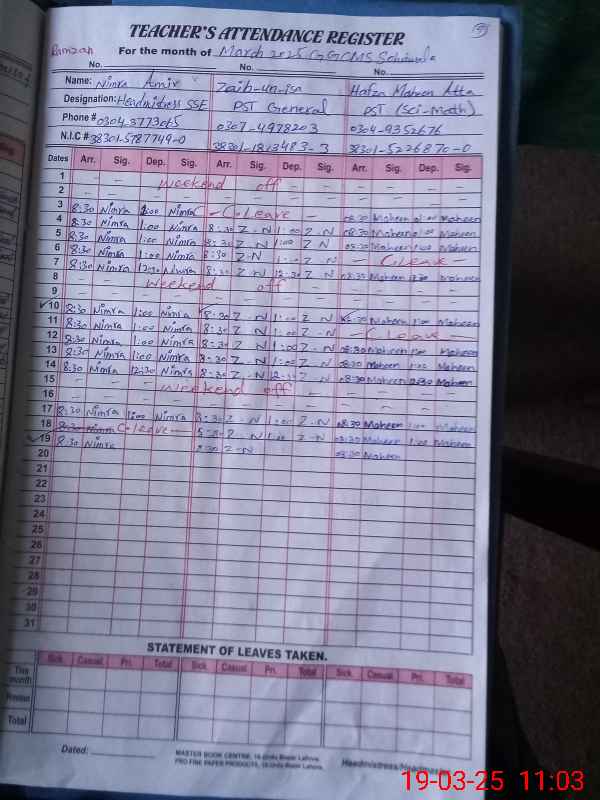 TEACHER'S ATTENDANCE REGISTER
Ramzan For the month of March 2025 GGCMS
No. No. No.
Name: Nimra Amir Zaib-un-isa Hafza Maheen Atta
Designation: Headmistress SSE PST General PST (Sci-math)
Phone # 0307-4978203 0304-9352676
N.I.C # 38301-5787749-0 38301-1823483-3 38301-5226870-0
Dates Arr. Sig. Dep. Sig. Arr. Sig. Dep. Sig. Arr. Sig. Dep. Sig.
1 weekend off
2
3 8:30 Nimra 1:00 Nimra C-Leave 08:30 Maheen 1:00 Maheen
4 8:30 Nimra 1:00 Nimra 8:30 Z-N 1:00 Z-N 08:30 Maheen 1:00 Maheen
5 8:30 Nimra 1:00 Nimra 8:30 Z-N 1:00 Z-N 08:30 Maheen 1:00 Maheen
6 8:30 Nimra 1:00 Nimra 8:30 Z-N 1:00 Z-N C-Leave
7 8:30 Nimra 12:30 Nimra 8:30 Z-N 12:30 Z-N 08:30 Maheen 12:30 Maheen
8 weekend off
9
10 8:30 Nimra 1:00 Nimra 8:30 Z-N 1:00 Z-N 08:30 Maheen 1:00 Maheen
11 8:30 Nimra 1:00 Nimra 8:30 Z-N 1:00 Z-N C-Leave
12 8:30 Nimra 1:00 Nimra 8:30 Z-N 1:00 Z-N 08:30 Maheen 1:00 Maheen
13 8:30 Nimra 1:00 Nimra 8:30 Z-N 1:00 Z-N 08:30 Maheen 1:00 Maheen
14 8:30 Nimra 12:30 Nimra 8:30 Z-N 12:30 Z-N 08:30 Maheen 12:30 Maheen
15 weekend off
16
17 8:30 Nimra 1:00 Nimra 8:30 Z-N 1:00 Z-N 08:30 Maheen 1:00 Maheen
18 8:30 Nimra C-leave 8:30 Z-N 1:00 Z-N 08:30 Maheen 1:00 Maheen
19 8:30 Nimra 8:30 Z-N 08:30 Maheen
20
21
22
23
24
25
26
27
28
29
30
31
STATEMENT OF LEAVES TAKEN.
Sick. Casual. Pri. Total Sick. Casual. Pri. Total Sick. Casual. Pri. Total
This month
Total
Dated:
MASTER BOOK CENTRE, 16-Urdu Bazar Lahore.
PRO FINE PAPER PRODUCTS, 16-Urdu Bazar Lahore.
Headmistress/Headmaster
19-03-25 11:03